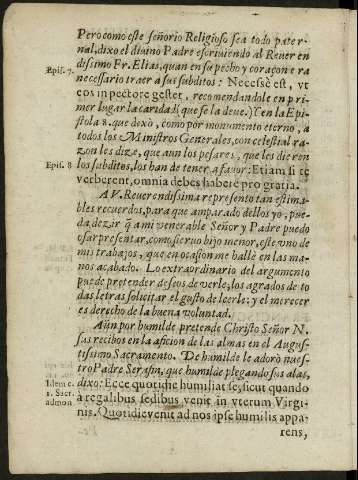 Pero como este señorio Religioso sea todo pater-
nal, dixo el diuino Padre escriuiendo al Reueren
dissimo Fr. Elias, quan en su pecho y coraçon era
Epis. 7. necessario traer a sus subditos: Necessè est, vt
eos in pectore gestet, recomendandole en pri-
mer lugar la caridad (que se la deue.) Y en la Epi-
stola 8. que dexò, como por monumento eterno, a
todos los Ministros Generales, con celestial ra-
zon les dize, que aun los pesares, que les dieron
Epis. 8 los subditos, los han de tener a fauor: Etiam si te
verberent, omnia debes habere pro gratia.
A V. Reuerendissima represento tan estima-
bles recuerdos, para que amparado dellos yo, pue-
da dezir q̃ a mi venerable Señor y Padre puedo
osar presentar, como sieruo bijo menor, este vno de
mis trabajos, que en ocasion me hallè en las ma-
nos acabado. Lo extraordinario del argumento
puede pretender deseos de verle; los agrados de to
das letras solicitar el gusto de leerle: y el merecer
es derecho de la buena voluntad.
Aũn por humilde pretende Christo Señor N.
sus recibos en la aficion de las almas en el Augus-
tissimo Sacramento. De humilde le adorò nues-
tro Padre Serafin, que humilde plegando sus alas,
Idem c. dixo: Ecce quotidie humiliat se, sicut quando
1. Sacr. à regalibus sedibus venit in vterum Virgi-
admon nis. Quotidie venit ad nos ipse humilis appa-
rens,